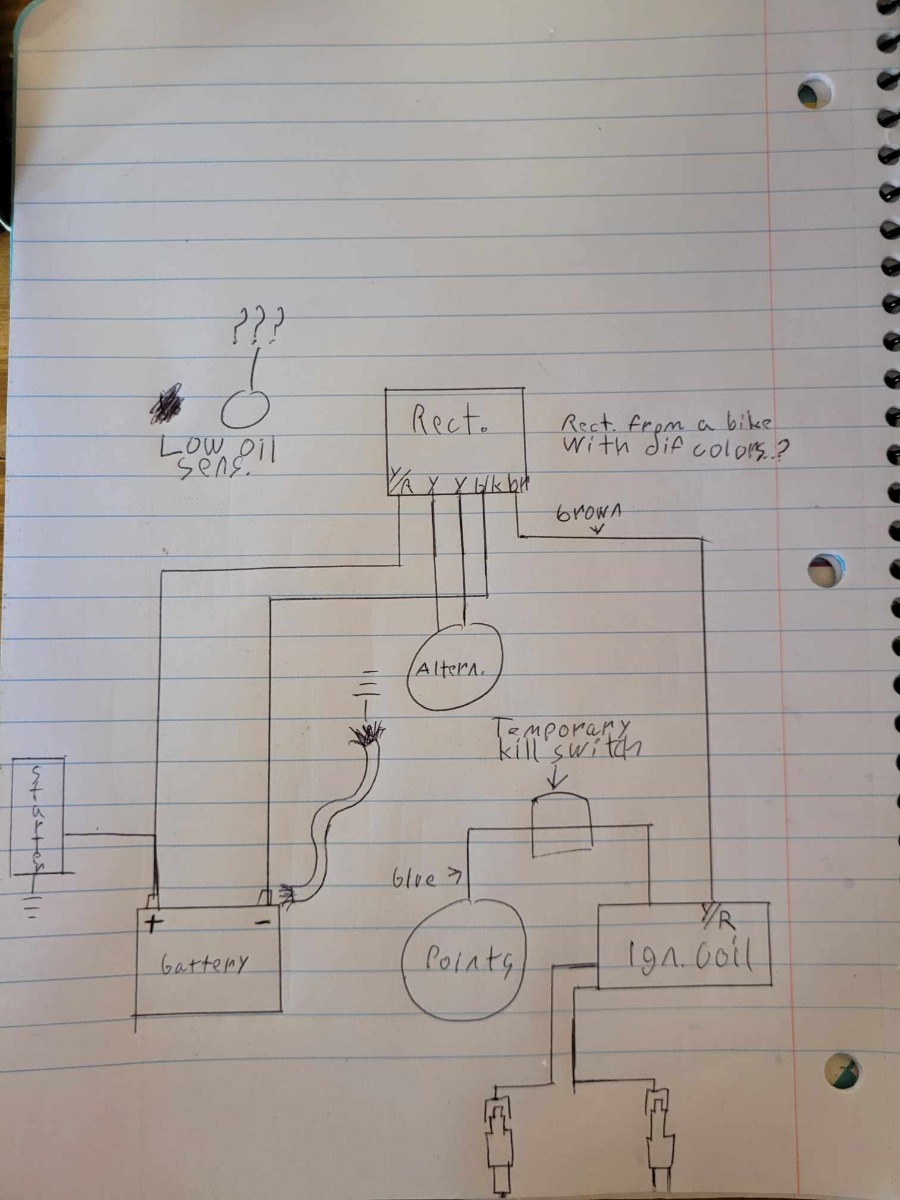 ???
Low oil
sens.
Rect.
Y/R Y Y blk br
Rect. from a bike
with dif colors.?
brown
Altern.
Temporary
kill switch
Starter
blue
+ -
battery
Points
Y/R
Ign. Coil